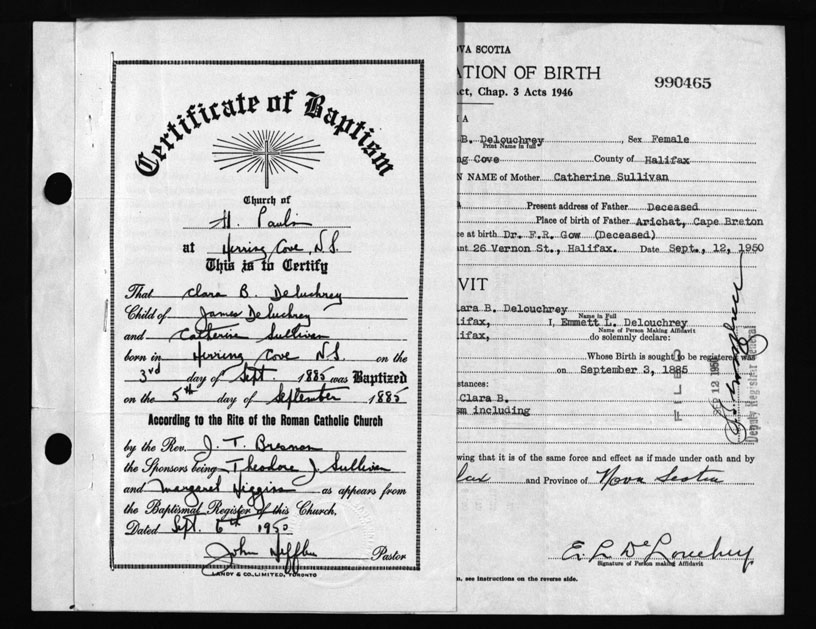 Certificate of Baptism
Church of
St. Paul's
at Herring Cove, N.S.
This is to Certify
That Clara B. Deluchrey
Child of James Deluchrey
and Catherine Sullivan
born in Herring Cove N.S. on the
3rd day of Sept. 1885 was Baptized
on the 5th day of September 1885
According to the Rite of the Roman Catholic Church
by the Rev. J. T.
the Sponsors being Theodore J Sullivan
and Margaret Higgins as appears from
the Baptismal Register of this Church.
Dated Sept. 6th 1950
John Pastor
LANDY & CO. LIMITED, TORONTO
OVA SCOTIA
ATION OF BIRTH
990465
ct, Chap. 3 Acts 1946
IA
B. Delouchrey, Sex Female
Print Name in full
ng Cove County of Halifax
N NAME of Mother Catherine Sullivan
Present address of Father Deceased
Place of birth of Father Arichat, Cape Breton
ce at birth Dr. F.R. Gow (Deceased)
nt 26 Vernon St., Halifax. Date Sept., 12, 1950
VIT
lara B. Delouchrey
Name in Full
lifax, I, Emmett L. Delouchrey
Name of Person Making Affidavit
lifax, do solemnly declare:
Whose Birth is sought to be registered was
on September 3, 1885
stances:
Clara B.
sm including
FILED
12 1950
Deputy Registrar General
wing that it is of the same force and effect as if made under oath and by
fax and Province of Nova Scotia
E. L. DeLouchrey
Signature of Person making Affidavit
n, see instructions on the reverse side.